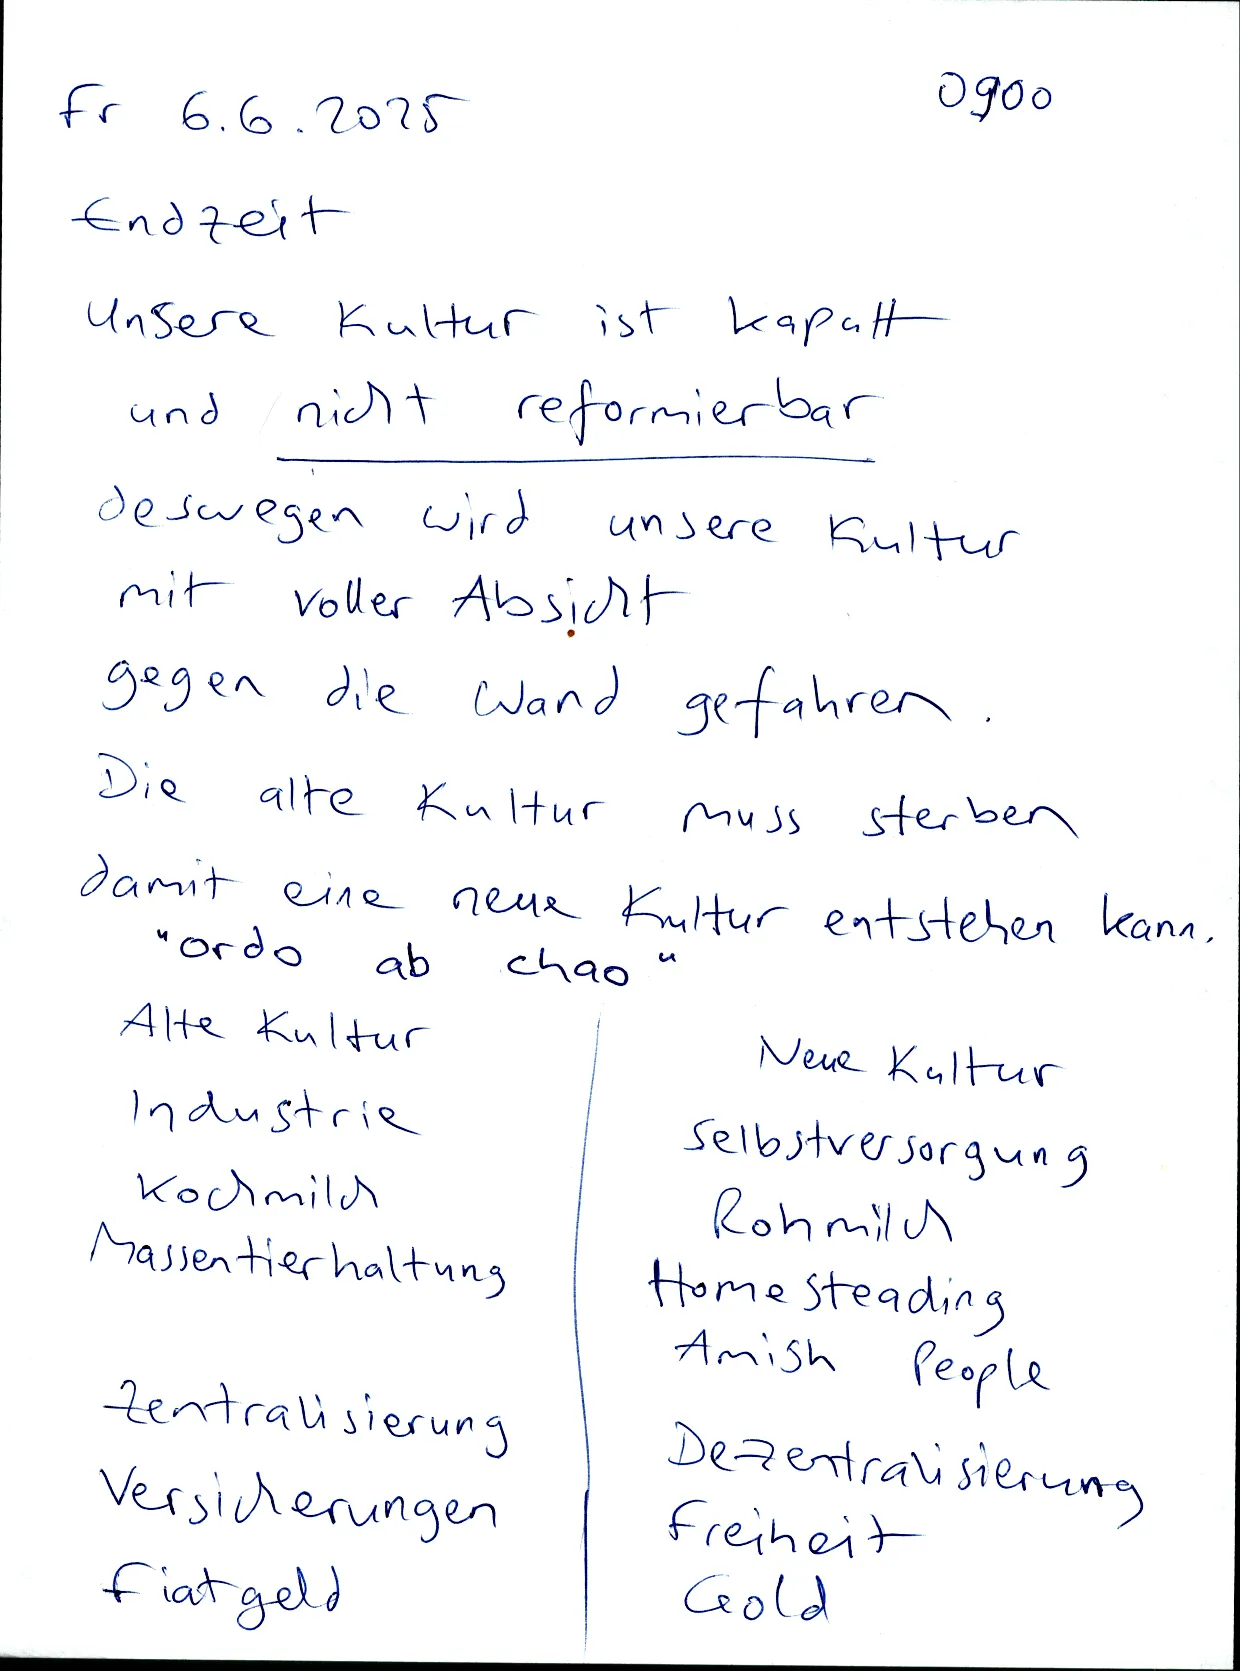 Fr 6.6.2025 0900
Endzeit
Unsere Kultur ist kaputt
und nicht reformierbar
deswegen wird unsere Kultur
mit voller Absicht
gegen die Wand gefahren.
Die alte Kultur muss sterben
damit eine neue Kultur entstehen kann.
"ordo ab chao"
Alte Kultur
Industrie
Kochmilch
Massentierhaltung
Zentralisierung
Versicherungen
Fiatgeld
Neue Kultur
Selbstversorgung
Rohmilch
Homesteading
Amish People
Dezentralisierung
Freiheit
Gold